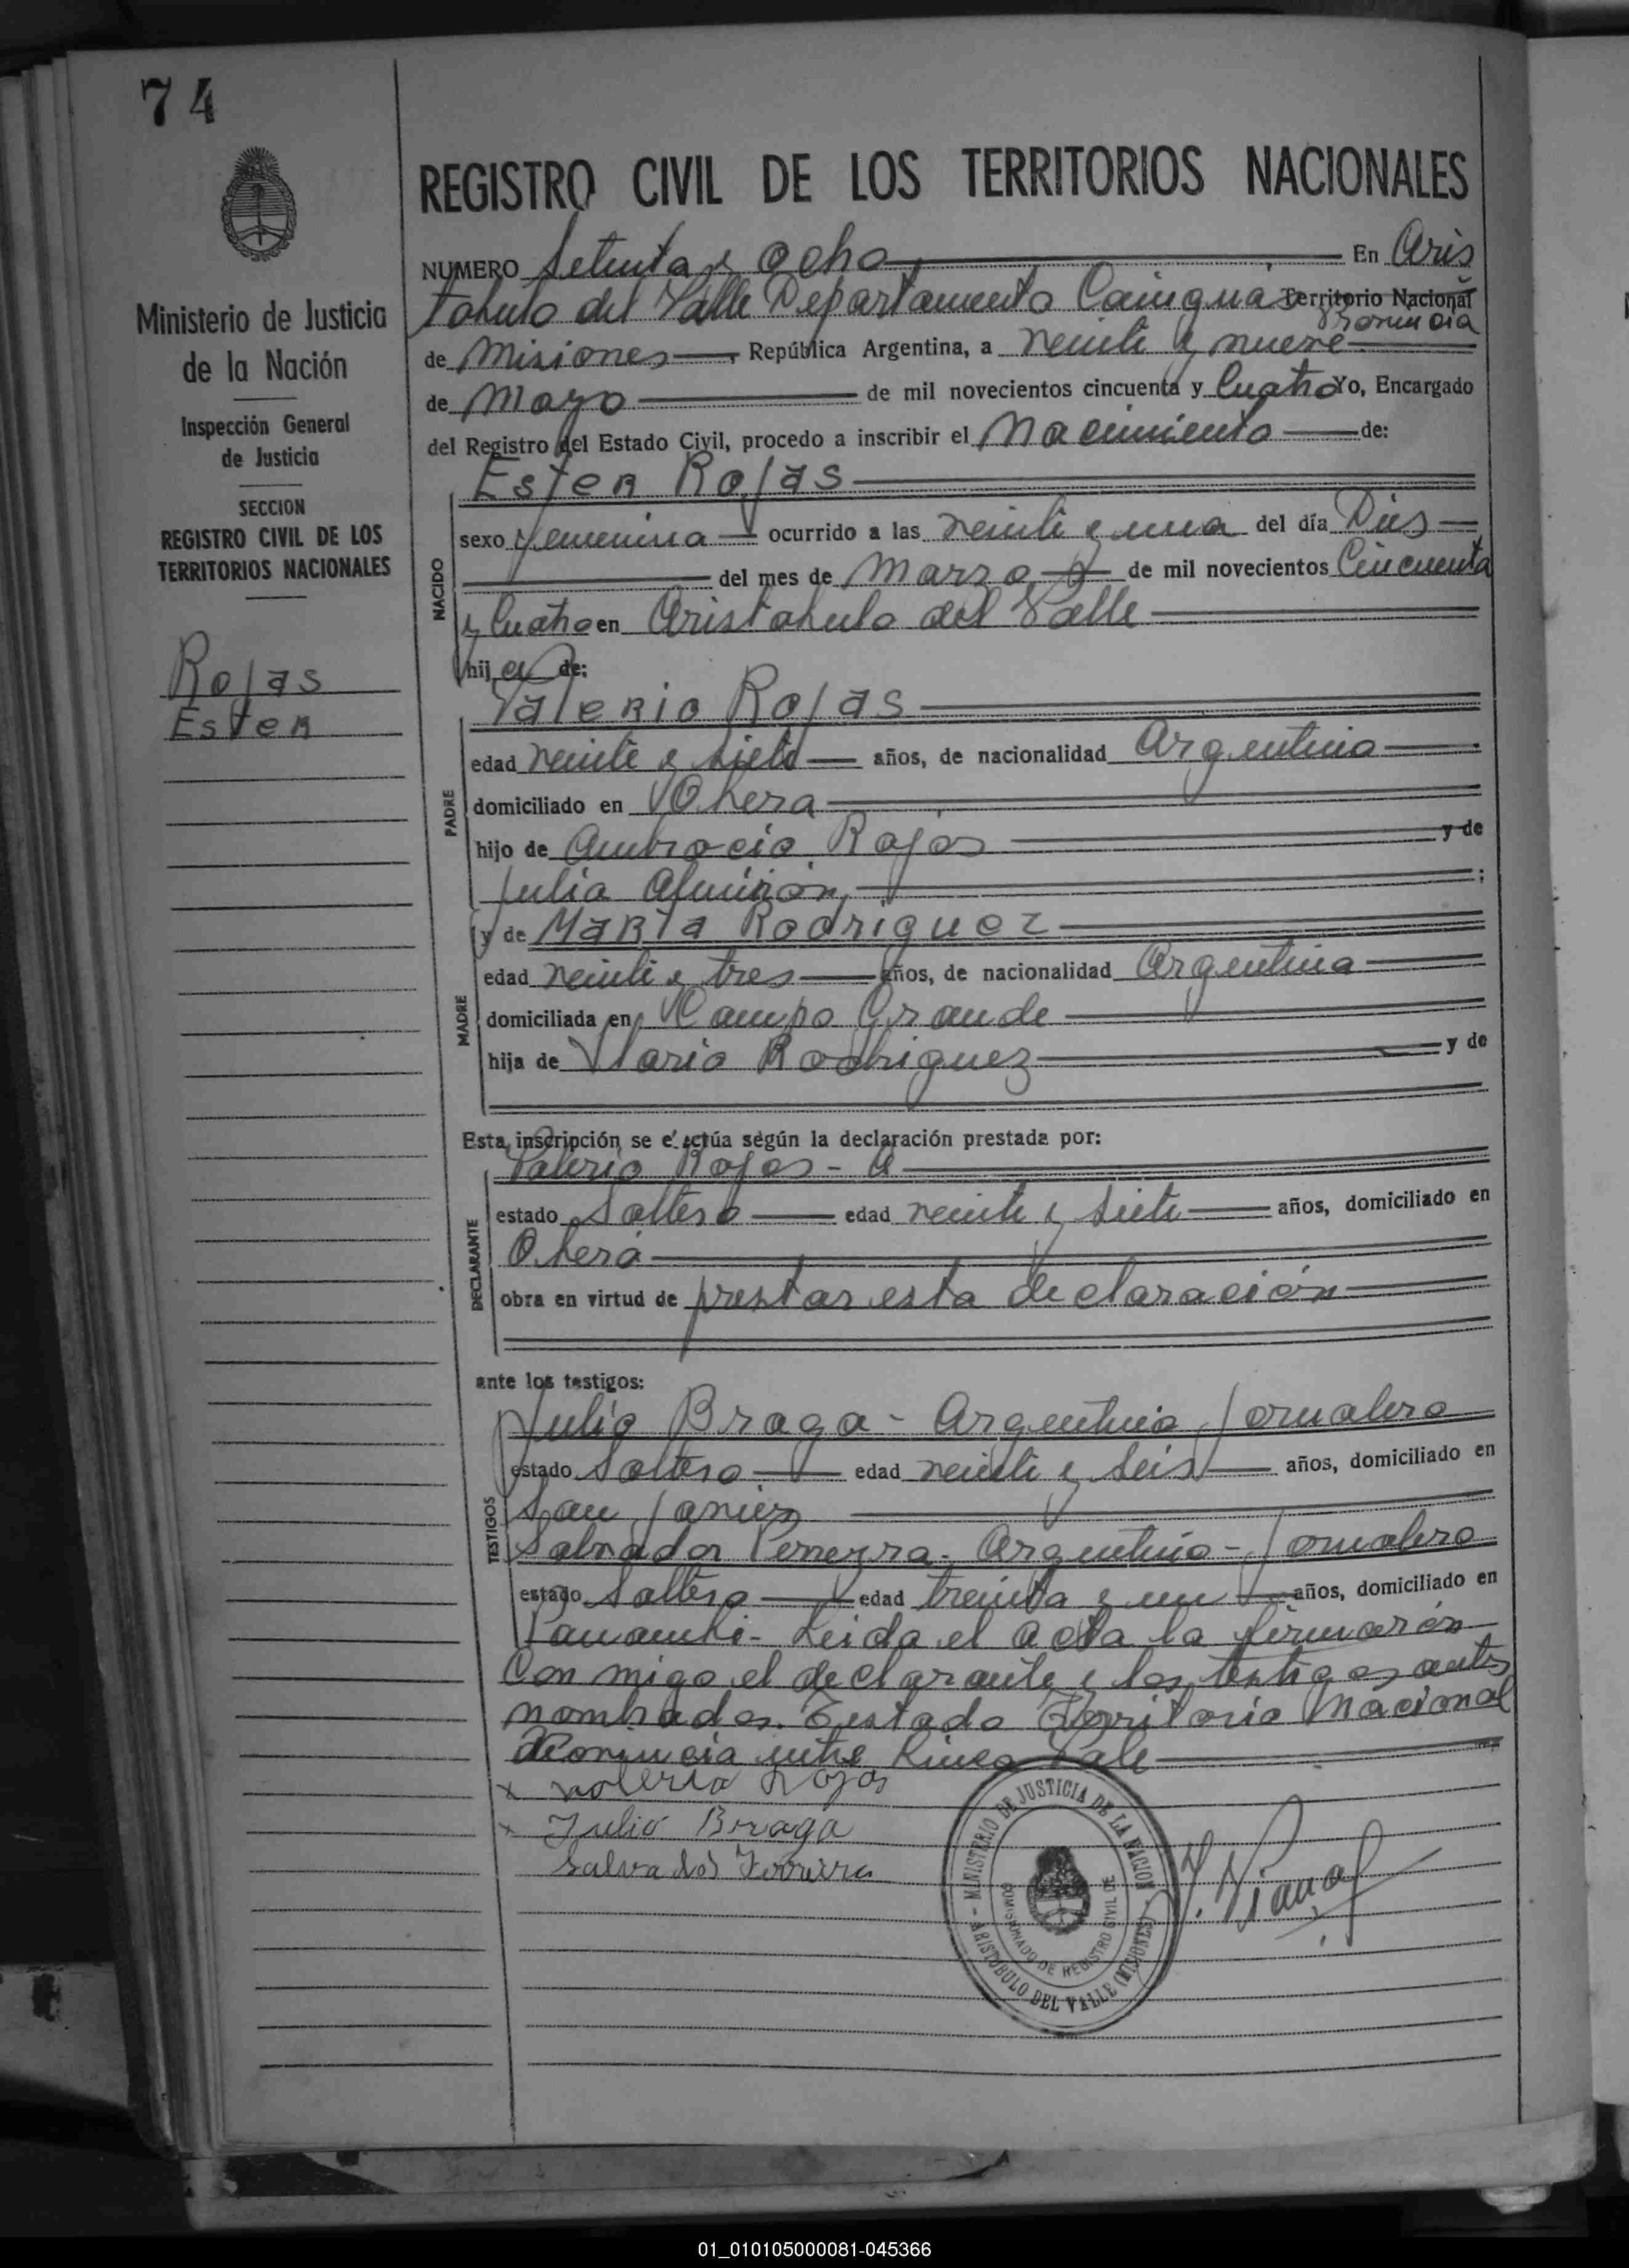 74
REGISTRO CIVIL DE LOS TERRITORIOS NACIONALES
NUMERO Setenta y ocho En Aris
tobulo del Valle Departamento Cainguás Territorio Nacional
Provincia
de Misiones, República Argentina, a veinti y nueve
de Mayo de mil novecientos cincuenta y Cuatro Yo, Encargado
del Registro del Estado Civil, procedo a inscribir el Nacimiento de:
Ester Rojas
sexo femenina ocurrido a las veinti y una del día Dies
del mes de Marzo de mil novecientos Cincuenta
y Cuatro en Aristobulo del Valle
hija de:
NACIDO
Valerio Rojas
edad veinte y siete años, de nacionalidad Argentino
domiciliado en Obera
hijo de Ambrocio Rojas y de
Julia
PADRE
y de Maria Rodriguez
edad veinti y tres años, de nacionalidad Argentina
domiciliada en Campo Grande
hija de Maria Rodriguez y de
MADRE
Esta inscripción se efectúa según la declaración prestada por:
Valerio Rojas - A
estado Soltero edad veinte y siete años, domiciliado en
Oberá
obra en virtud de prestar esta declaración
DECLARANTE
ante los testigos:
Julio Braga - Argentino Jornalero
estado Soltero edad veinti y seis años, domiciliado en
San Javier
Salvador Ferreyra - Argentino - Jornalero
estado Soltero edad treinta y un años, domiciliado en
TESTIGOS
Panambi - Leida el acta la firmarón
Con migo el declarante y los testigos antes
nombrados. Testado Territorio Nacional
Provincia entre linea Vale
x valerio Rojas
x Julio Braga
Salvador Ferreira
MINISTERIO DE JUSTICIA DE LA NACION
COMISIONADO DE REGISTRO CIVIL DE
ARISTOBULO DEL VALLE (MISIONES)
Ministerio de Justicia
de la Nación
Inspección General
de Justicia
SECCION
REGISTRO CIVIL DE LOS
TERRITORIOS NACIONALES
Rojas
Ester
01_010105000081-045366